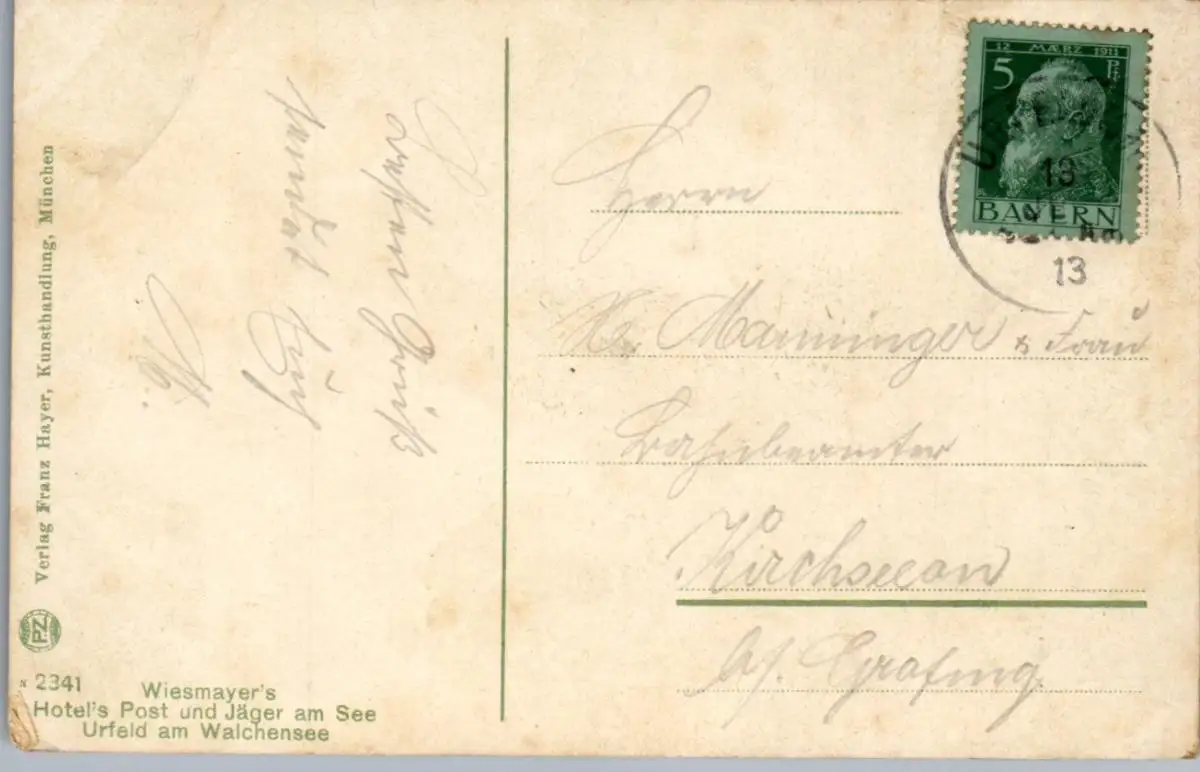 12 MÆRZ 1911
5 Pf
BAYERN
13
13
Herrn
Manninger & Frau
Bahnbeamter
Kirchseeon
b/. Grafing.
Besten Gruß
sendet Euch
Verlag Franz Hayer, Kunsthandlung, München
PZ
N 2341
Wiesmayer's
Hotel's Post und Jäger am See
Urfeld am Walchensee